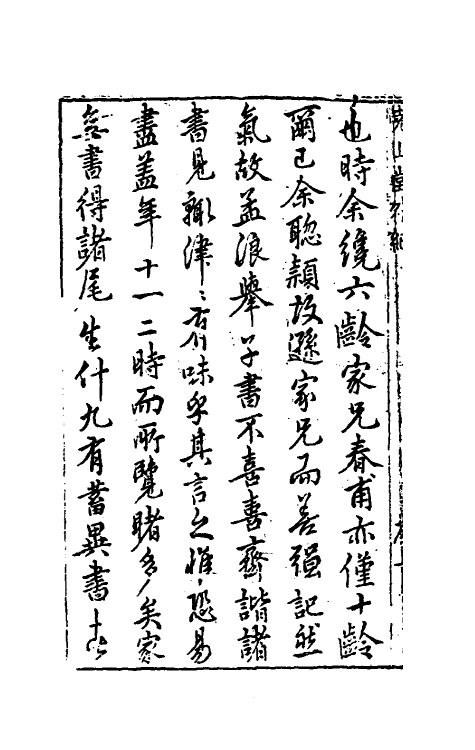 也時余纔六齡家兄春甫亦僅十齡
爾已余聰穎故遜家兄而善强記然
氣故孟浪舉子書不喜喜齊諧諸
書見輒津〻有味乎其言之惟恐易
盡蓋年十一二時而所覽睹多矣家
無書得諸尾生什九有蓄異書